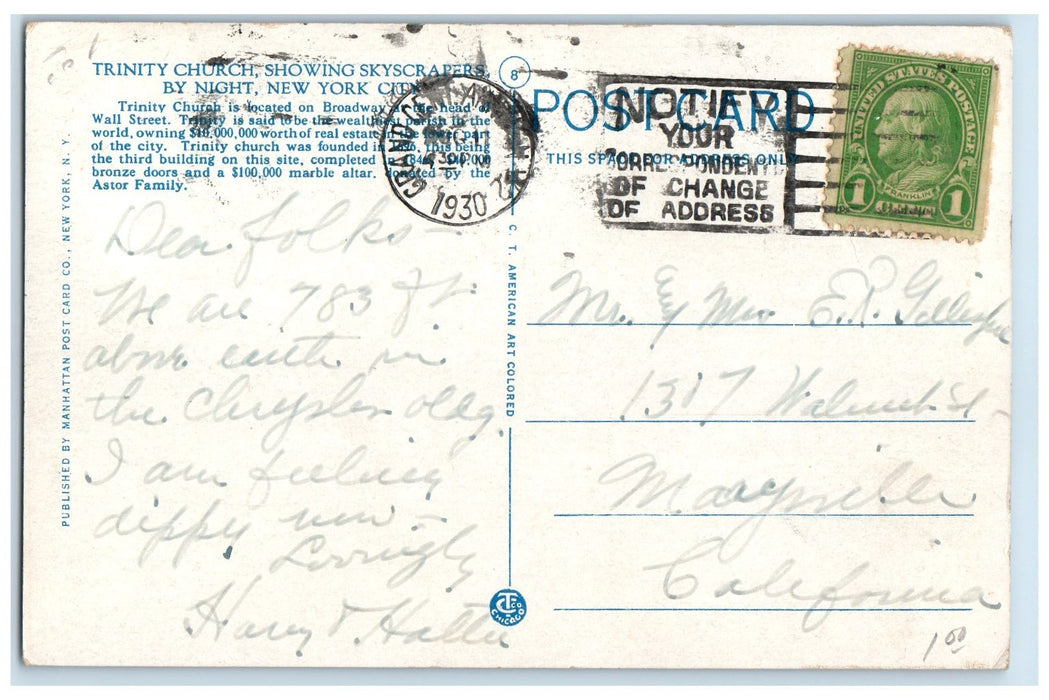 TRINITY CHURCH, SHOWING SKYSCRAPERS,
BY NIGHT, NEW YORK CITY
Trinity Church is located on Broadway at the head of
Wall Street. Trinity is said to be the wealthiest parish in the
world, owning $10,000,000 worth of real estate in the lower part
of the city. Trinity church was founded in 1696, this being
the third building on this site, completed in 1846. $40,000
bronze doors and a $100,000 marble altar, donated by the
Astor Family.
Dear folks—
We are 783 ft.
above earth in
the Chrysler Bldg.
I am feeling
dippy now—
Lovingly
Harry & Hattie
PUBLISHED BY MANHATTAN POST CARD CO., NEW YORK, N. Y.
8
C. T. AMERICAN ART COLORED
CT CO
CHICAGO
POST CARD
THIS SPACE FOR ADDRESS ONLY
GRAND
1930
NOTIFY
YOUR
CORRESPONDENTS
OF CHANGE
OF ADDRESS
UNITED STATES POSTAGE
FRANKLIN
1 1
Mr. & Mrs. E. R. Gillespie
1317 Walnut St—
Marysville
California
1.00